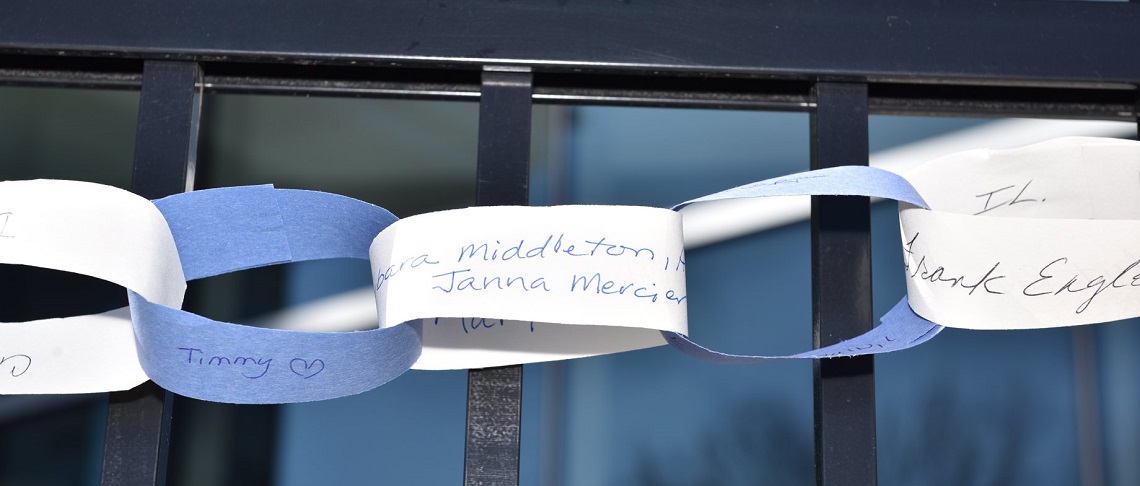 Timmy ♡
bara Middleton,
Janna Mercier
IL.
Frank Engle